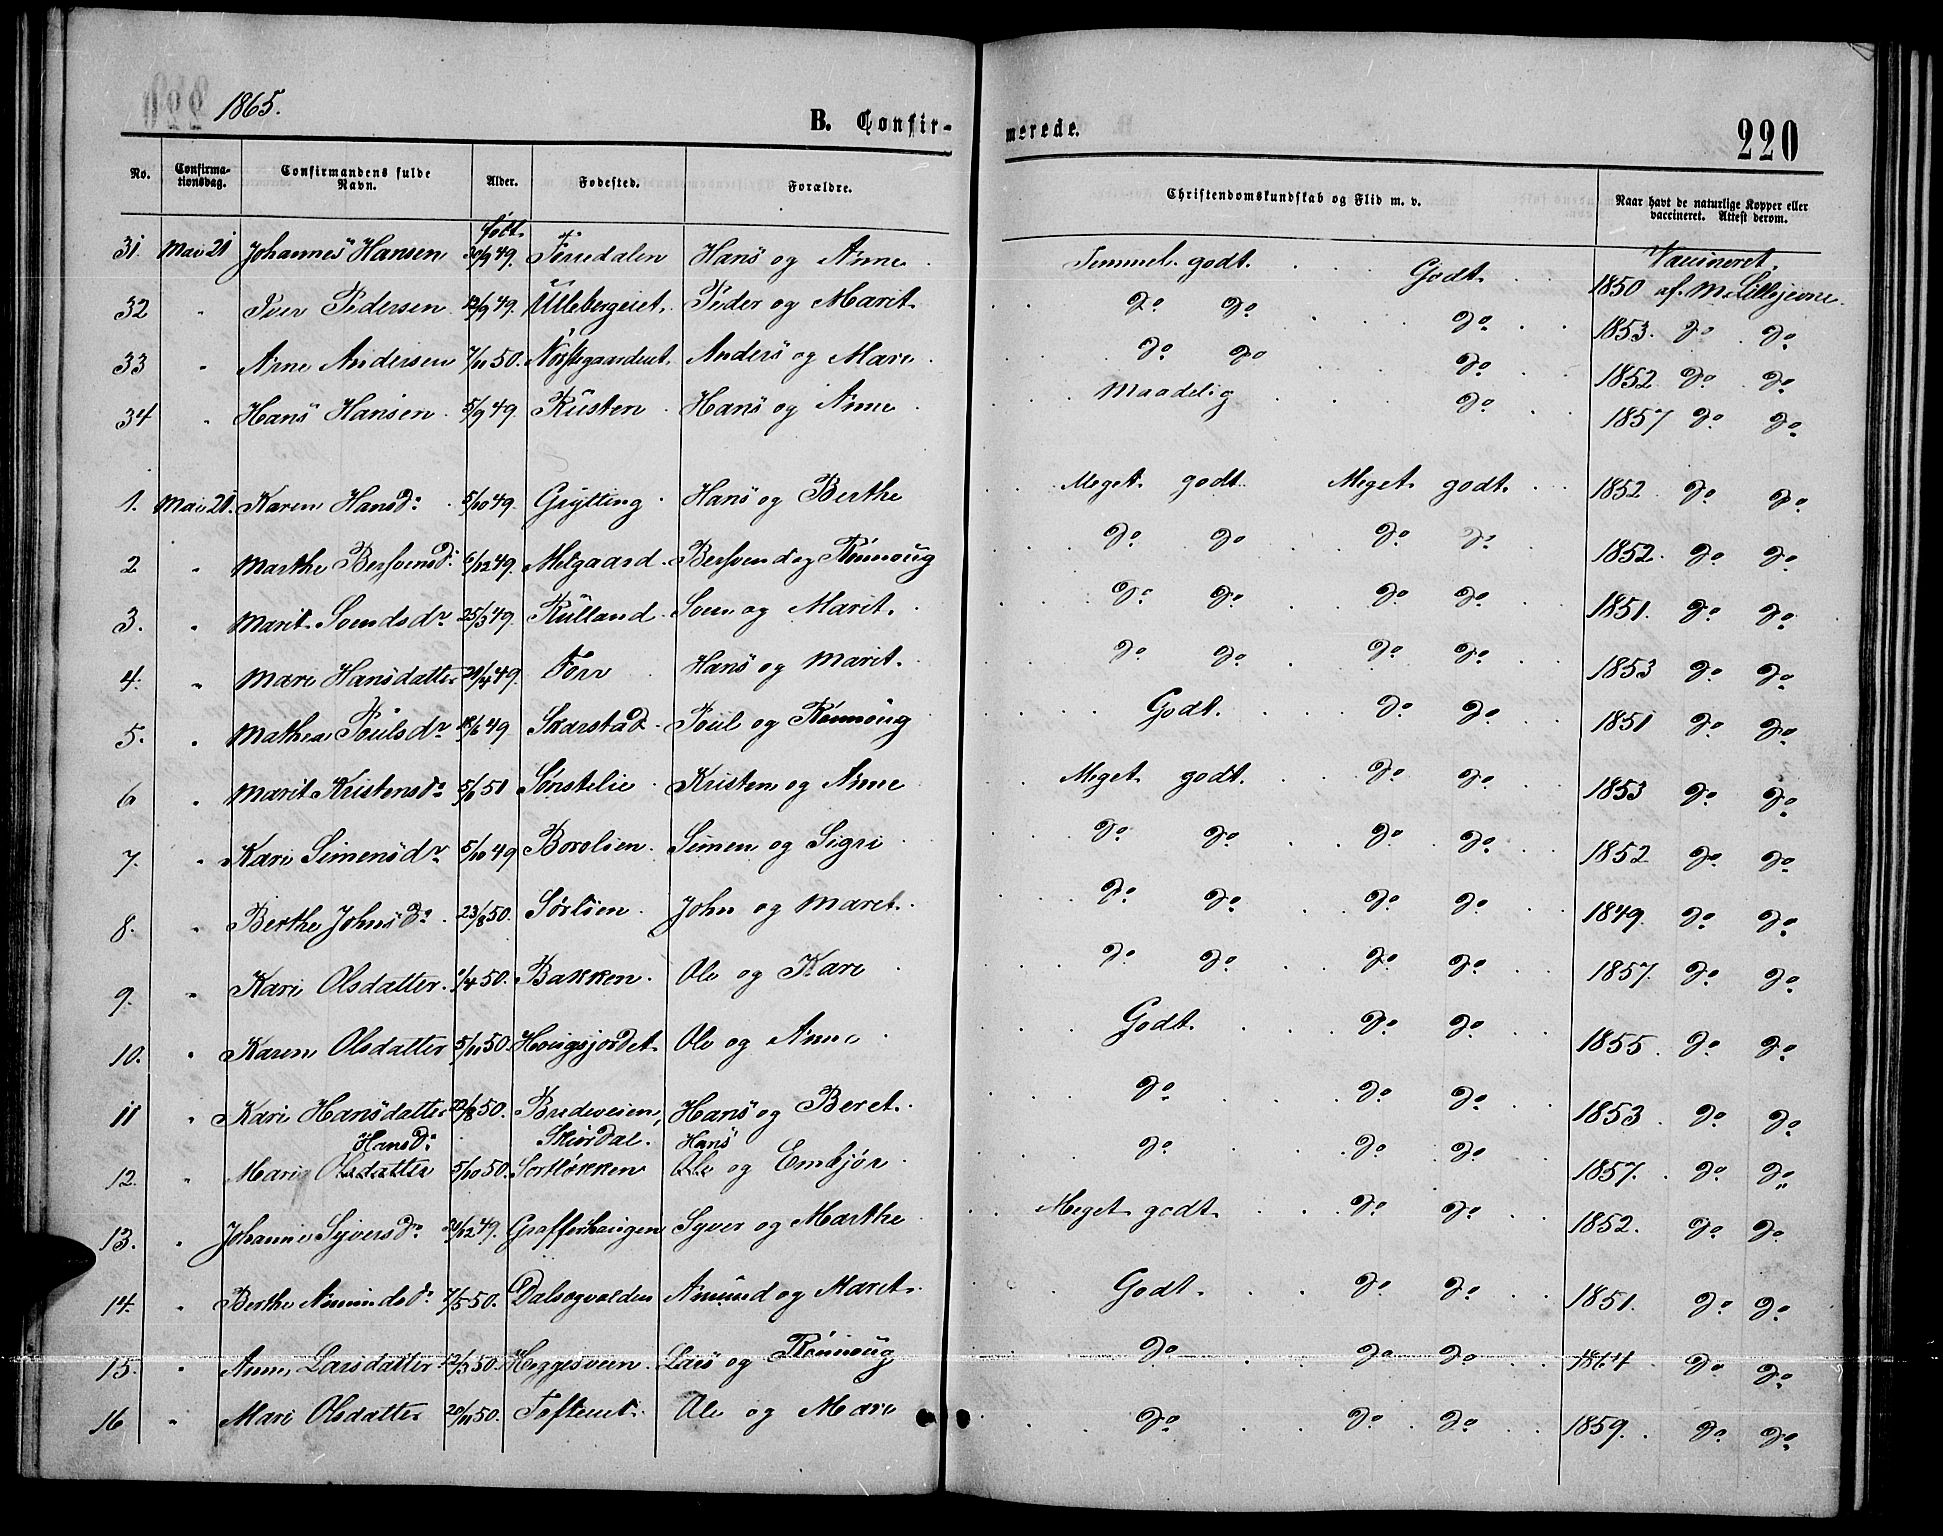 1865.
B. Confir-
merede.
220
No. Confirma-tionsdag. Confirmandens fulde Navn. Alder. Fødested. Forældre. Christendomskundskab og Flid m. v. Naar havt de naturlige Kopper eller vaccineret. Attest derom.
født Vaccineret
31. Mai 21 Johannes Hansen 30/9 49. Hans og Anne Temmel. godt. Godt. 1850 af M. Lillejevne.
32 " Iver Pedersen 12/9 49. Ullebergeiet. Peder og Marit do do do 1853. do do
33 " Arne Andersen 7/11 50. Anders og Mari do do do 1852 do do
34 " Hans Hansen 5/9 49. Kusten Hans og Anne Maadelig do 1857 do do
1. Mai 21. Karen Hansd: 5/10 49. Grytting Hans og Berthe Meget godt Meget godt. 1852 do do
2 " Marthe Bersvensd: 6/12 49. Melgaard Bersvend og Rønnoug do do do do 1852. do do
3. " Marit Svendsdr 25/3 49. Rulland Sven og Marit do do do do 1851. do do
4. " Mari Hansdatter 21/4 49. Forr Hans og Marit. do do do do 1853 do do
5. " Mathea Poulsdr 18/6 49 Skarstad Poul og Rønnoug Godt. do do 1851 do do
6 " Marit Kristensdr Sønstelie Kristen og Anne Meget godt. do do 1853 do do
7. " Kari Simensdr 5/10 49 Borolien Simen og Sigri do do do do 1852 do do
8. " Berthe Johnsdr 23/8 50. Sørlien John og Maret. do do do do 1849. do do
9. " Kari Olsdatter. 1/4 50. Bakken. Ole og Kari do do do do 1857. do do
10. " Karen Olsdatter 5/11 50. Hougsjordet Ole og Anne Godt. do do 1855. do do
11 " Kari Hansdatter 22/8 50. Bredeveien, Hans og Beret. do do do 1853 do do
Hansd: Skurdal. Hans
12. " Mari Olsdatter 5/10 50. Sortløkken Ole og Embjør do do do 1857. do do
13. " Johanne Syversd: 21/12 49. Grafferhaugen Syver og Marthe Meget godt do do 1852. do do
14. " Berthe Amundsd: 7/5 50. Dalsegvolden Amund og Maret. Godt. do do 1851. do do
15. " Anne Larsdatter 12/3 50. Heggesveen. Lars og Rønnoug do do do 1864 do do
16 " Mari Olsdatter 20/11 50. Tofteeiet. Ole og Mari do do do 1859. do do